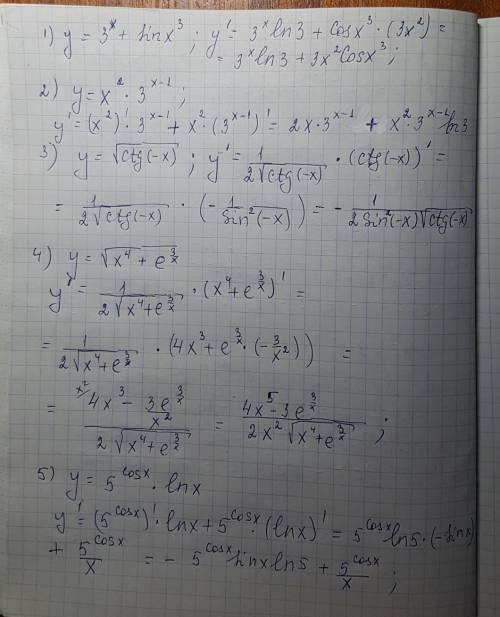 1) y = 3^x + sin x^3 ; y' = 3^x ln3 + cos x^3 · (3x^2) =
= 3^x ln3 + 3x^2 cos x^3 ;
2) y = x^2 · 3^{x-1} ;
y' = (x^2)' · 3^{x-1} + x^2 · (3^{x-1})' = 2x · 3^{x-1} + x^2 · 3^{x-1} ln3
3) y = √(ctg(-x)) ; y' = 1/(2√(ctg(-x))) · (ctg(-x))' =
= 1/(2√(ctg(-x))) · (-1/(sin^2(-x))) = - 1/(2 sin^2(-x) √(ctg(-x)))
4) y = √(x^4 + e^{3/x})
y' = 1/(2√(x^4 + e^{3/x})) · (x^4 + e^{3/x})' =
= 1/(2√(x^4 + e^{3/x})) · (4x^3 + e^{3/x} · (-3/x^2)) =
= (x^2/ 4x^3 - 3e^{3/x}/x^2)/(2√(x^4 + e^{3/x})) = (4x^5 - 3e^{3/x})/(2x^2 √(x^4 + e^{3/x})) ;
5) y = 5^{cosx} · lnx
y' = (5^{cosx})' · lnx + 5^{cosx} · (lnx)' = 5^{cosx} ln5 · (-sinx)
+ 5^{cosx}/x = - 5^{cosx} sinx ln5 + 5^{cosx}/x ;